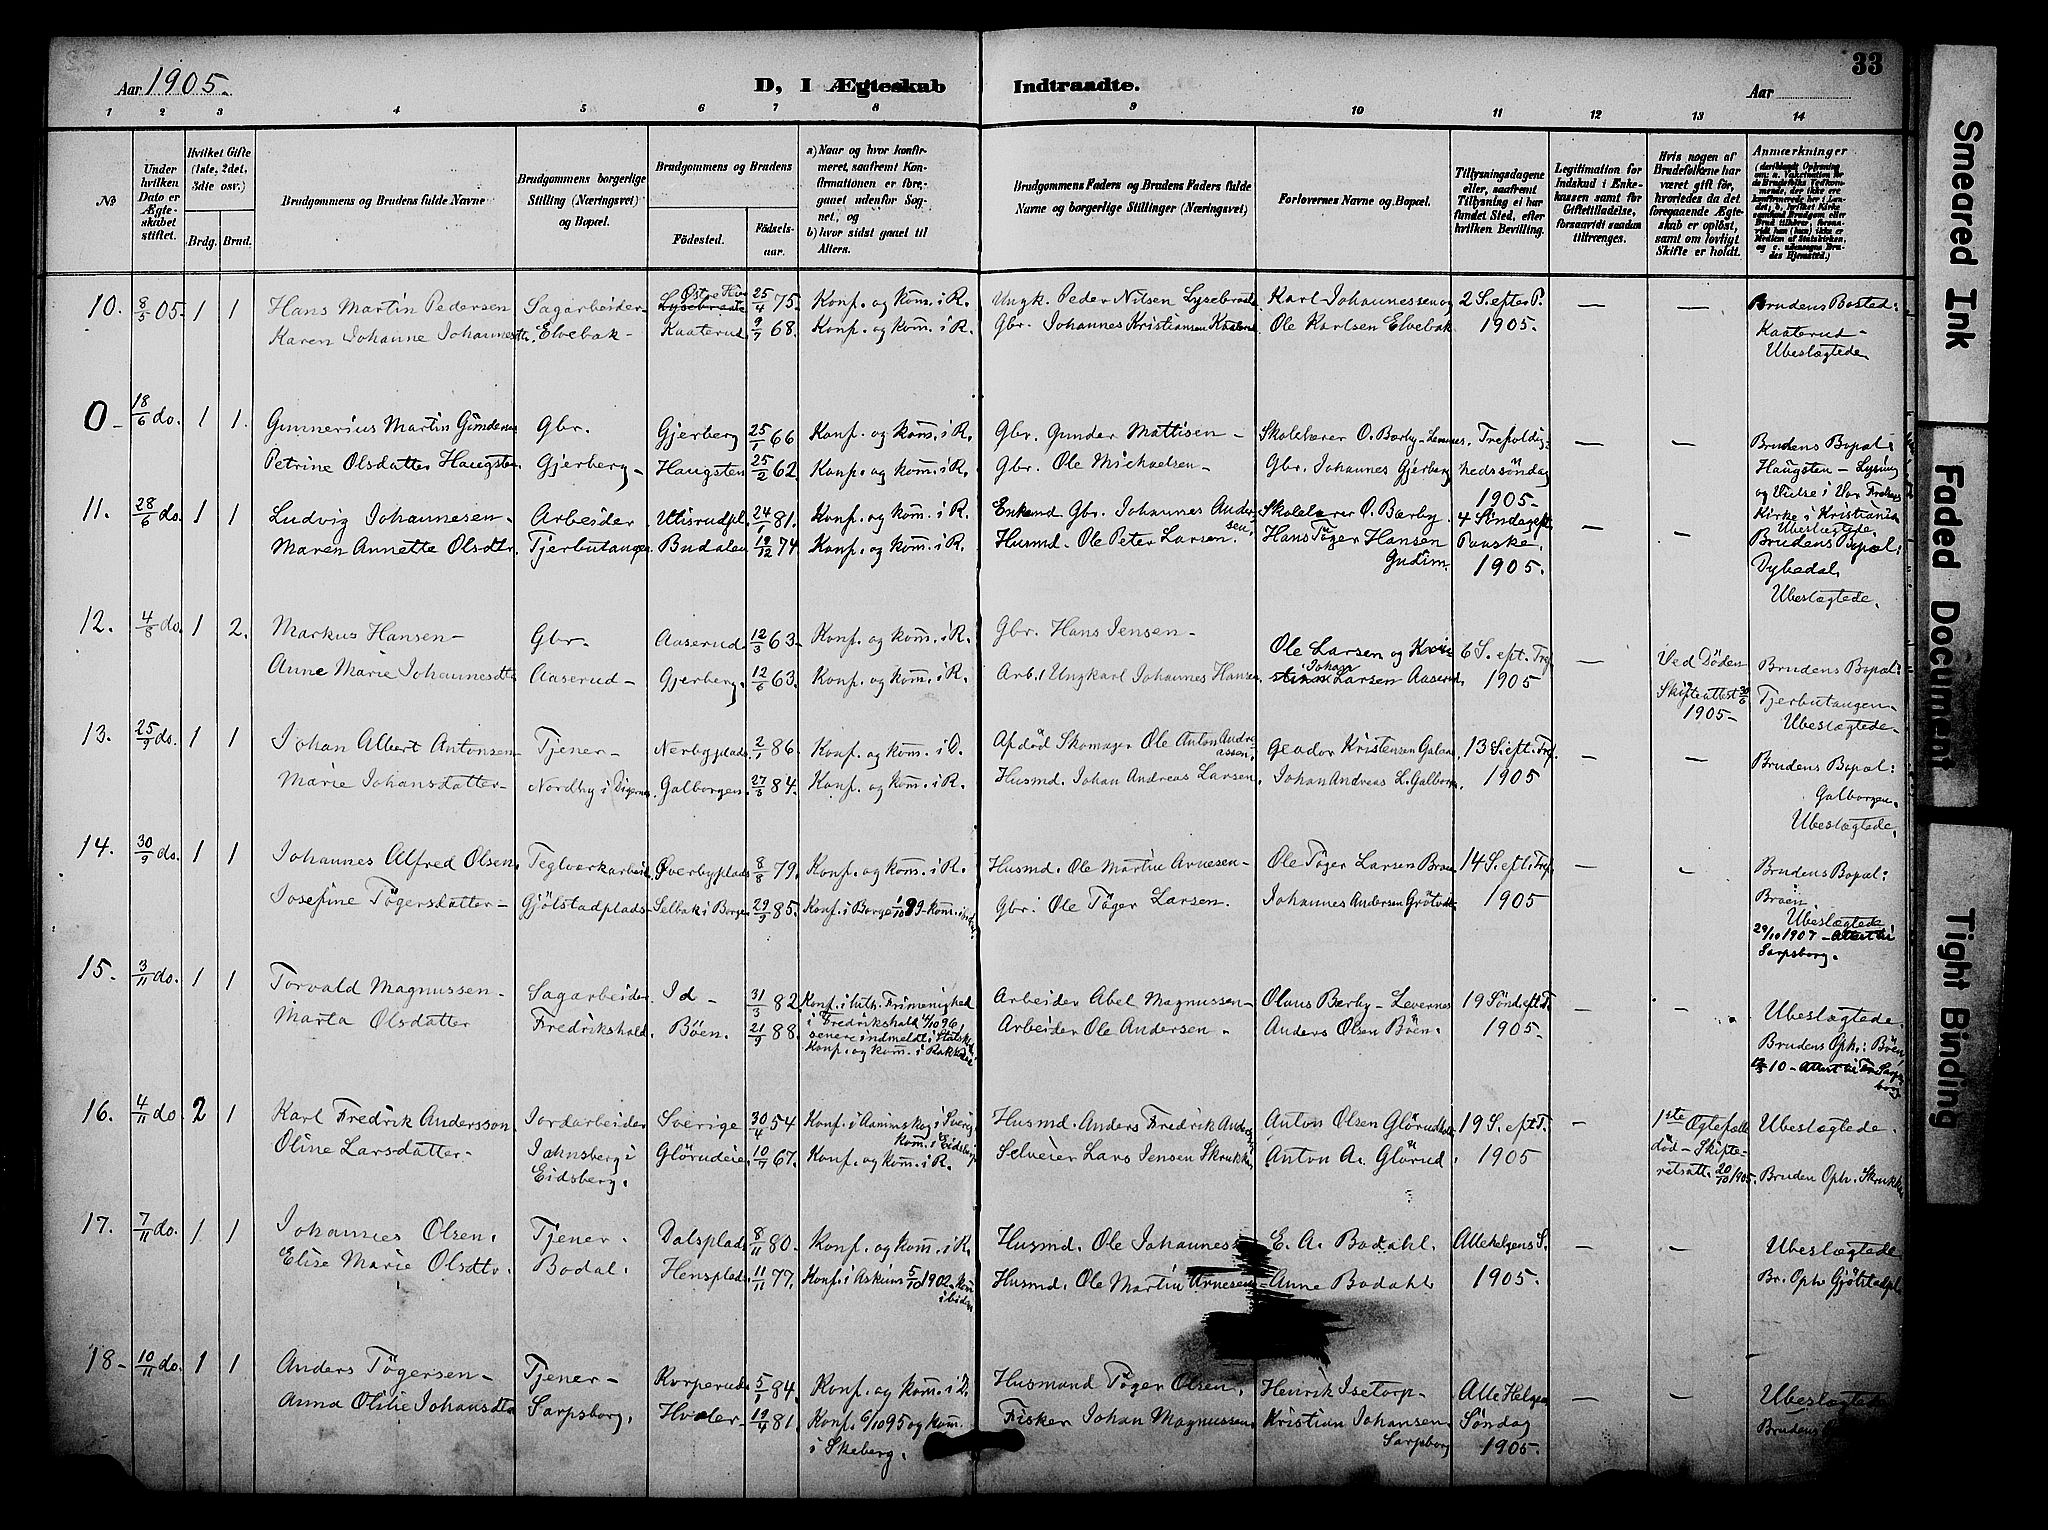 33
Aar 1905.
D, I Ægteskab Indtraadte.
Aar
1 2 3 4 5 6 7 8 9 10 11 12 13 14
No
Under hvilken Dato er Ægteskabet stiftet.
Hvilket Gifte (1ste, 2det, 3die osv.)
Brdg. Brud.
Brudgommens og Brudens fulde Navne
Brudgommens borgerlige Stilling (Næringsvei) og Bopæl.
Brudgommens og Brudens
Fødested. Fødselsaar.
a) Naar og hvor konfirmeret, saafremt Konfirmationen er foregaaet udenfor Sognet, og
b) hvor sidst gaaet til Alters.
Brudgommens Faders og Brudens Faders fulde Navne og borgerlige Stillinger (Næringsvei)
Forlovernes Navne og Bopæl.
Tillysningsdagene eller, saafremt Tillysning ei har fundet Sted, efter hvilken Bevilling.
Legitimation for Indskud i Enkekassen samt for Giftetilladelse, forsaavidt saadan tiltrænges.
Hvis nogen af Brudefolkene har været gift før, hvorledes da det foregaaende Ægteskab er opløst, samt om lovligt Skifte er holdt.
Anmærkninger
10. 8/5 05. 1 1 Hans Martin Pedersen Sagarbeider 25/4 75. Konf. og kom. i R. Ungk. Peder Nilsen Karl Johannessen og 2 S. efter P. — — Brudens Bosted:
Karen Johanne Johannesdtr. Elvebak - Kaaterud 9/7 68. Konf. og kom. i R. Gbr. Johannes Kristiansen Ole Karlsen Elvebak 1905. Kaaterud -
Ubeslægtede
0 - 18/6 do. 1 1. Gunnerius Martin Gbr. Gjerberg 25/1 66 Konf. og kom. i R. Gbr. Gunder Mattisen - Skolelærer O. Bærby - Trefoldig- — — Brudens Bopæl:
Petrine Olsdatter Haugsten Gjerberg - Haugsten 25/2 62 Konf. og kom. i R. Gbr. Ole Michaelsen - Gbr. Johannes Gjerberg hedssöndag Haugsten - Lysning
1905 - og Vielse i Vor Frelsers
Kirke i Kristiania
Ubeslægtede.
11. 28/6 do. 1 1 Ludvig Johannesen - Arbeider Utisrudpl. 24/1 81. Konf. og kom. i R. Enkemd Gbr. Johannes Andersen Skolelærer O. Bærby. 4 Söndag eft. — — Brudens Bopæl:
Maren Annette Olsdtr. Tjerbutangen Budalen 19/12 74. Konf. og kom. i R. Husmd. Ole Peter Larsen. Hans Töger Hansen Paaske. Dybedal
Gudim. 1905. Ubeslægtede.
12. 4/8 do. 1 2. Markus Hansen - Gbr. Aaserud 12/3 63. Konf. og kom. i R. Gbr. Hans Jensen - Ole Larsen og 6 S. eft. Tref. — Ved Döden Brudens Bopæl:
Anne Marie Johannesdtr Aaserud - Gjerberg. 12/6 63. Konf. og kom. i R. Arb. Ungkarl Johannes Hansen. Johan Larsen Aaserud. 1905 Skifteattest 1905 - Tjerbutangen -
Ubeslægtede -
13. 25/9 do. 1 1 Johan Albert Antonsen Tjener - Nerbyplads 2/1 86. Konf. og kom. i O. Afdöd Skomager Ole Anton Kristensen 13 S. eft. Tref. — — Brudens Bopæl:
Marie Johansdatter - Nordby i Galborgen. 27/3 84. Konf. og kom. i R. Husmd. Johan Andreas Larsen. Johan Andreas L. Galborgen. 1905 Galborgen.
Ubeslægtede.
14. 30/9 do. 1 1 Johannes Alfred Olsen. Teglverkarbeid. Överbyplads 8/8 79. Konf. og kom. i R. Husmd. Ole Martin Arnesen - Ole Töger Larsen 14 S. eft. Tref. — — Brudens Bopæl:
Josefine Tögersdatter - Gjölstadplads Selbak i Borge 29/9 85. Konf. i Borge 1/10 99 - kom. Gbr. Ole Töger Larsen. Johannes Andersen 1905
Ubeslægtede
29/10 1907 - Attest til
Sarpsborg.
15. 3/11 do. 1 1 Torvald Magnussen - Sagarbeider Id - 31/3 82 Konf. i luth. Frimenighed Arbeider Abel Magnussen - Olaus Bærby - Levernes 19 Sönd. eft. T. — — Ubeslægtede.
Marta Olsdatter Fredrikshald. Böen. 21/9 88. i Fredrikshald 4/10 96, senere indmeldt i Statsk. Konf. og kom. i Rakkestad Arbeider Ole Andersen - Anders Olsen Böen. 1905 - Brudens Oph.: Böen
16. 4/11 do. 2 1 Karl Fredrik Andersson Jordarbeider Sverige 30/4 54 Konf. i Sverig. kom. i Eidsberg. Husmd. Anders Fredrik Anton Olsen 19 S. eft. T. — 1ste Ægtefælle Ubeslægtede.
Oline Larsdatter - Jahnsberg i Glörudeie 10/7 67. Konf. og kom. i R. Selveier Lars Jensen Skrukke Anton A. Glörud. 1905 död - Skifteretsatt. 20/10 1905. Bruden Oph. Skrukke
Eidsberg.
17. 7/11 do. 1 1 Johannes Olsen. Tjener. Dalsplads 8/11 80. Konf. og kom. i R. Husmd. Ole Johannes E. A. Bodahl. Allehelgens S. — — Ubeslægtede
Elise Marie Olsdtr. Bodal. Hensplads 11/11 77. Konf. i Askim 5/10 1902. kom ibidm Husmd. Ole Martin Arnesen - Anne Bodahl 1905. Br. Oph Gjölstadpl.
18 - 10/11 do. 1 1 Anders Tögersen - Tjener - Korperud 5/1 84. Konf. og kom. i Husmand Töger Olsen. Henrik Isetorp - Alle Helgen — — Ubeslægtede
Anna Otilie Johansdtr Sarpsborg. Hvaler 19/4 81. Konf. 6/10 95 og kom. i Skeberg. Fisker Johan Magnussen. Kristian Johansen Söndag Brudens
Sarpsborg 1905.
Smeared Ink
Faded Document
Tight Binding